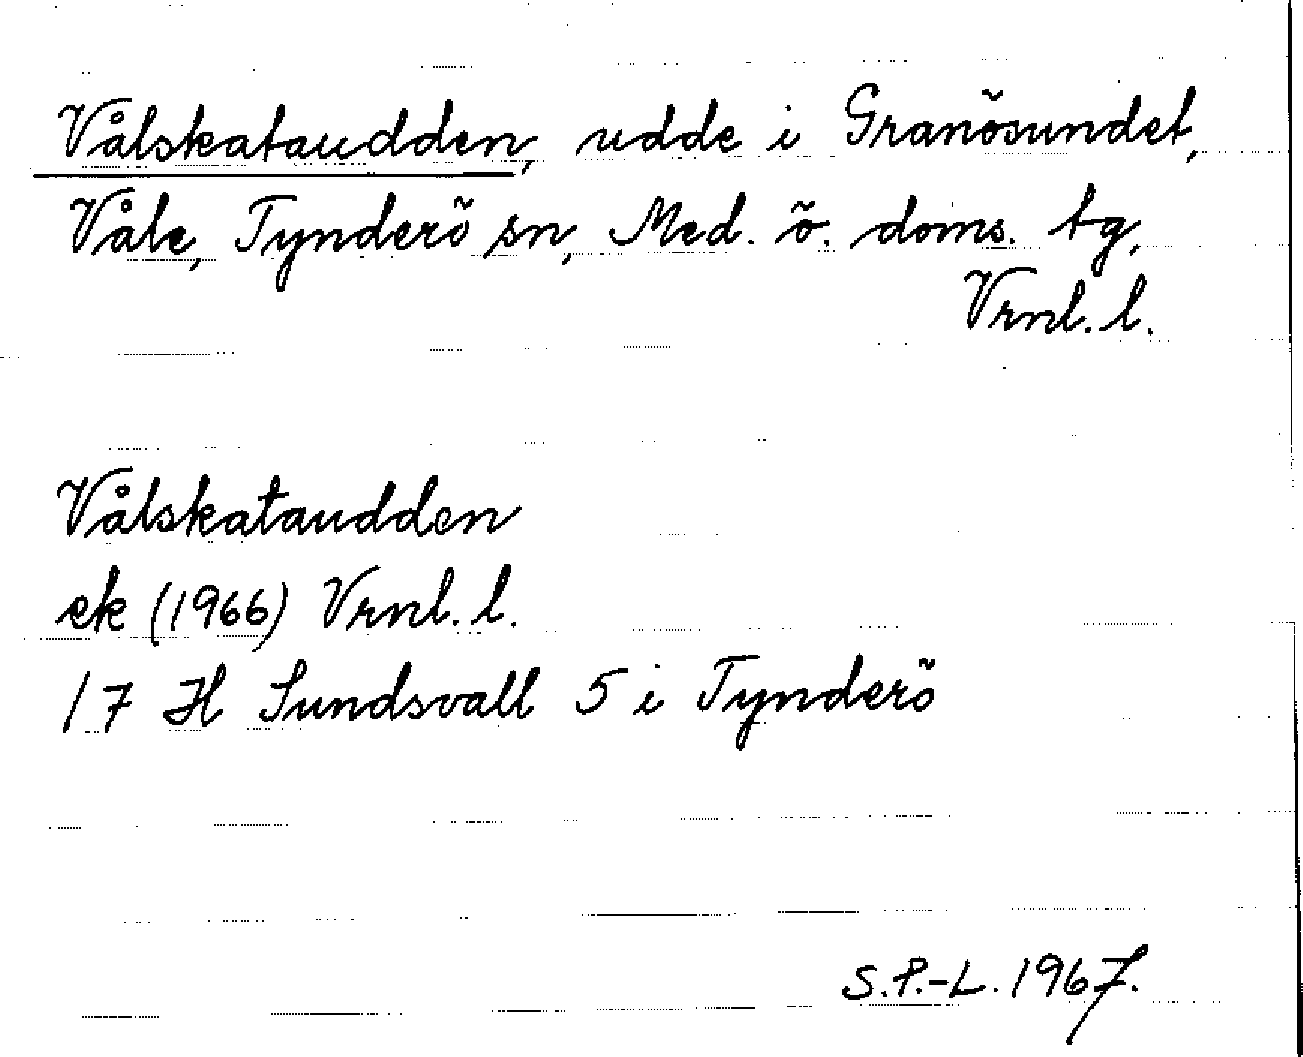 Vålskataudden, udde i Granösundet,
Våle, Tynderö sn, Med. ö. doms. tg,
Vrnl. l.
Vålskataudden
ek (1966) Vrnl. l.
17 H Sundsvall 5 i Tynderö
S.P.-L. 1967.